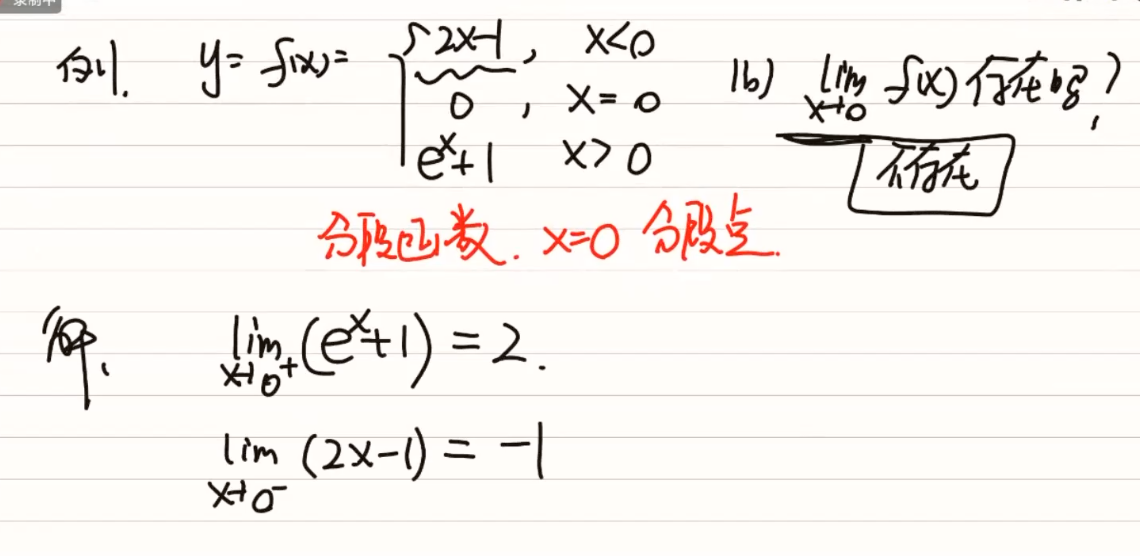 录制中
例1. y = f(x) = { 2x-1, x<0
0, x = 0
e^x+1 x>0
问 lim_{x→0} f(x) 存在吗?
不存在
分段函数. x=0 分段点.
解. lim_{x→0⁺} (e^x+1) = 2.
lim_{x→0⁻} (2x-1) = -1